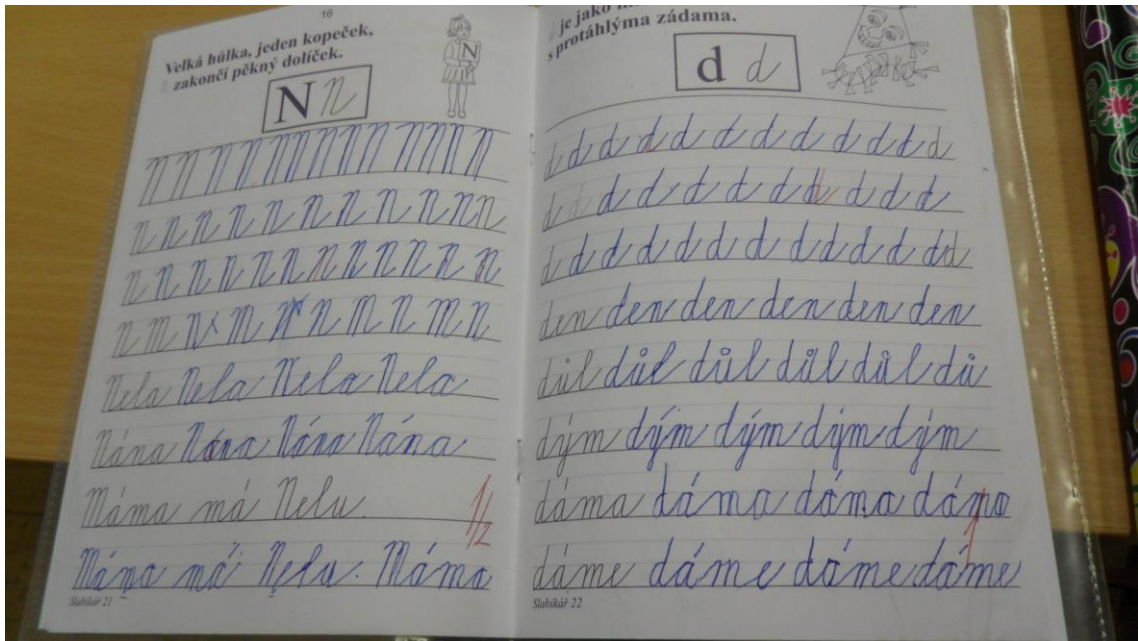 16
Velká hůlka, jeden kopeček,
zakončí pěkný dolíček.
N
N n
n n n n n n n n n n n n
n n n n n n n n n n n n
n n n n n n n n n n n n
n m n x m n n m n m n
Nela Nela Nela Nela
Nána Nána Nána Nána
Máma má Nelu.
1/2
Máma má Nelu. Máma
Slabikář 21
je jako
s protáhlýma zádama.
d d
d d d d d d d d d d d d
d d d d d d d d d d d
d d d d d d d d d d d d
den den den den den
důl důl důl důl dů
dým dým dým dým
dáma dáma dáma dáma
1
dáme dáme dáme dáme
Slabikář 22